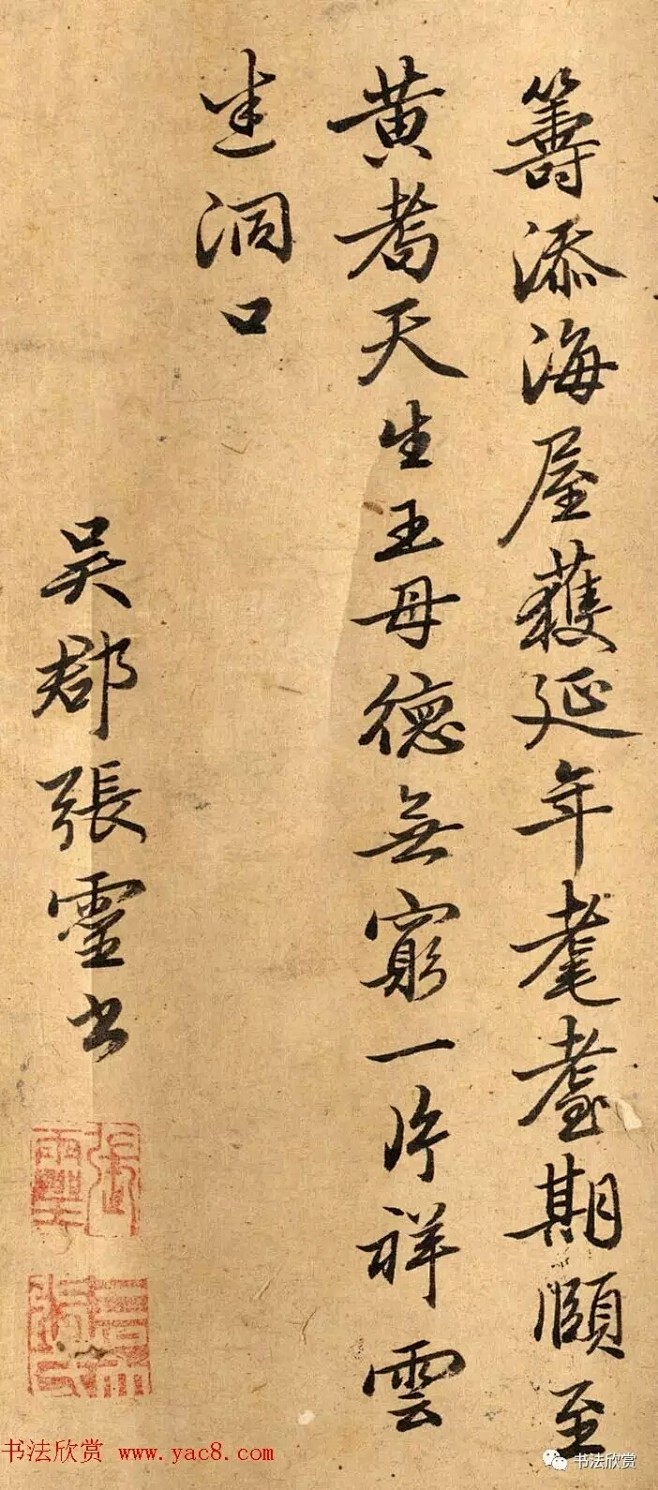 籌添海屋獲延年耄耋期頤至
黄耇天生王母德無窮一片祥雲
迷洞口
吴郡張靈書
張靈
书法欣赏 www.yac8.com
书法欣赏